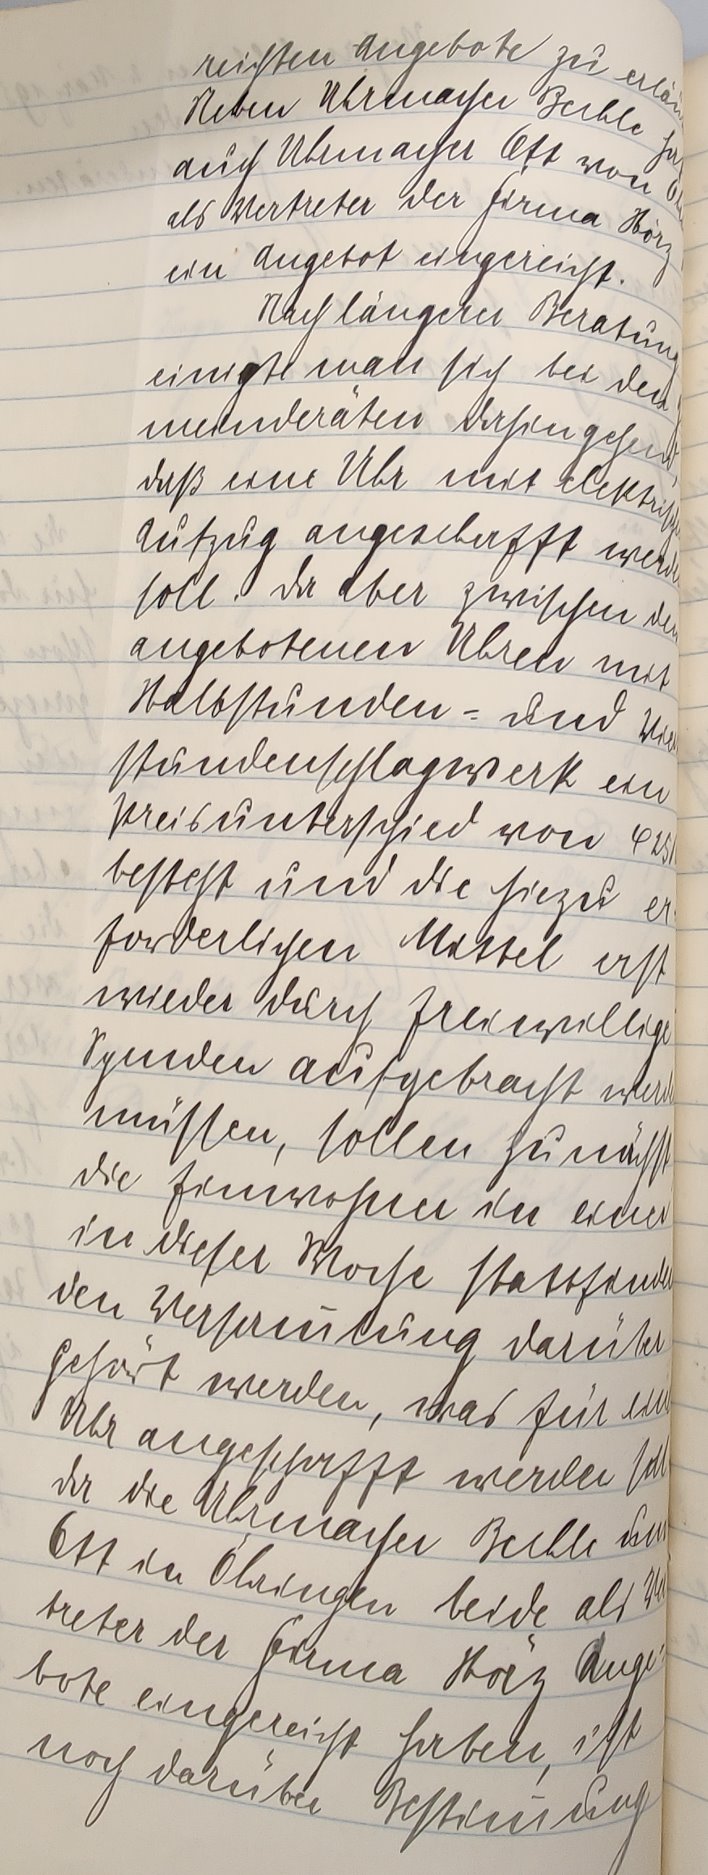 reichten Angebote zu erläu
Neben Uhrmacher Berkle hat
auch Uhrmacher Ott von Öh
als Vertreter der Firma Hörz
ein Angebot eingereicht.
Nach längerer Beratung
einigte man sich bei den
meinderäten dahingehend,
daß eine Uhr mit elektrisch
Aufzug angeschafft werde
soll. Da aber zwischen den
angebotenen Uhren mit
Halbstunden- und Vier
stundenschlagwerk ein
Preisunterschied von
besteht und die hiezu er-
forderlichen Mittel erst
wieder durch freiwillige
Spenden aufgebracht werde
müssen, sollen zunächst
die Einwohner in einer
in dieser Woche stattfinden
den Versammlung darüber
gehört werden, was für ein
Uhr angeschafft werden soll
da die Uhrmacher Berkle un
Ott in Öhringen beide als Ver
treter der Firma Hörz Ange-
bote eingereicht haben, ist
noch darüber Bestimmung